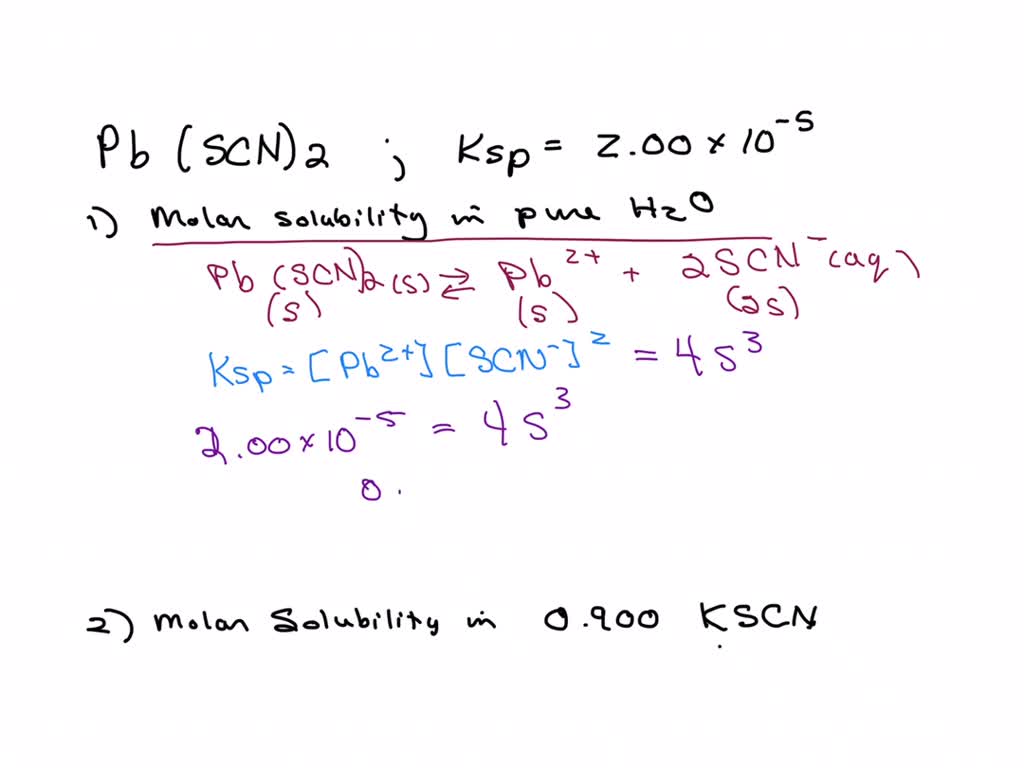 Pb (SCN)2 ; Ksp = 2.00 × 10^-5
1) Molar solubility in pure H2O
Pb (SCN)2 (s) ⇌ Pb^2+ + 2SCN^- (aq)
(s) (s) (2s)
Ksp = [Pb^2+] [SCN^-]^2 = 4s^3
2.00 × 10^-5 = 4s^3
0.
2) Molar Solubility in 0.900 KSCN